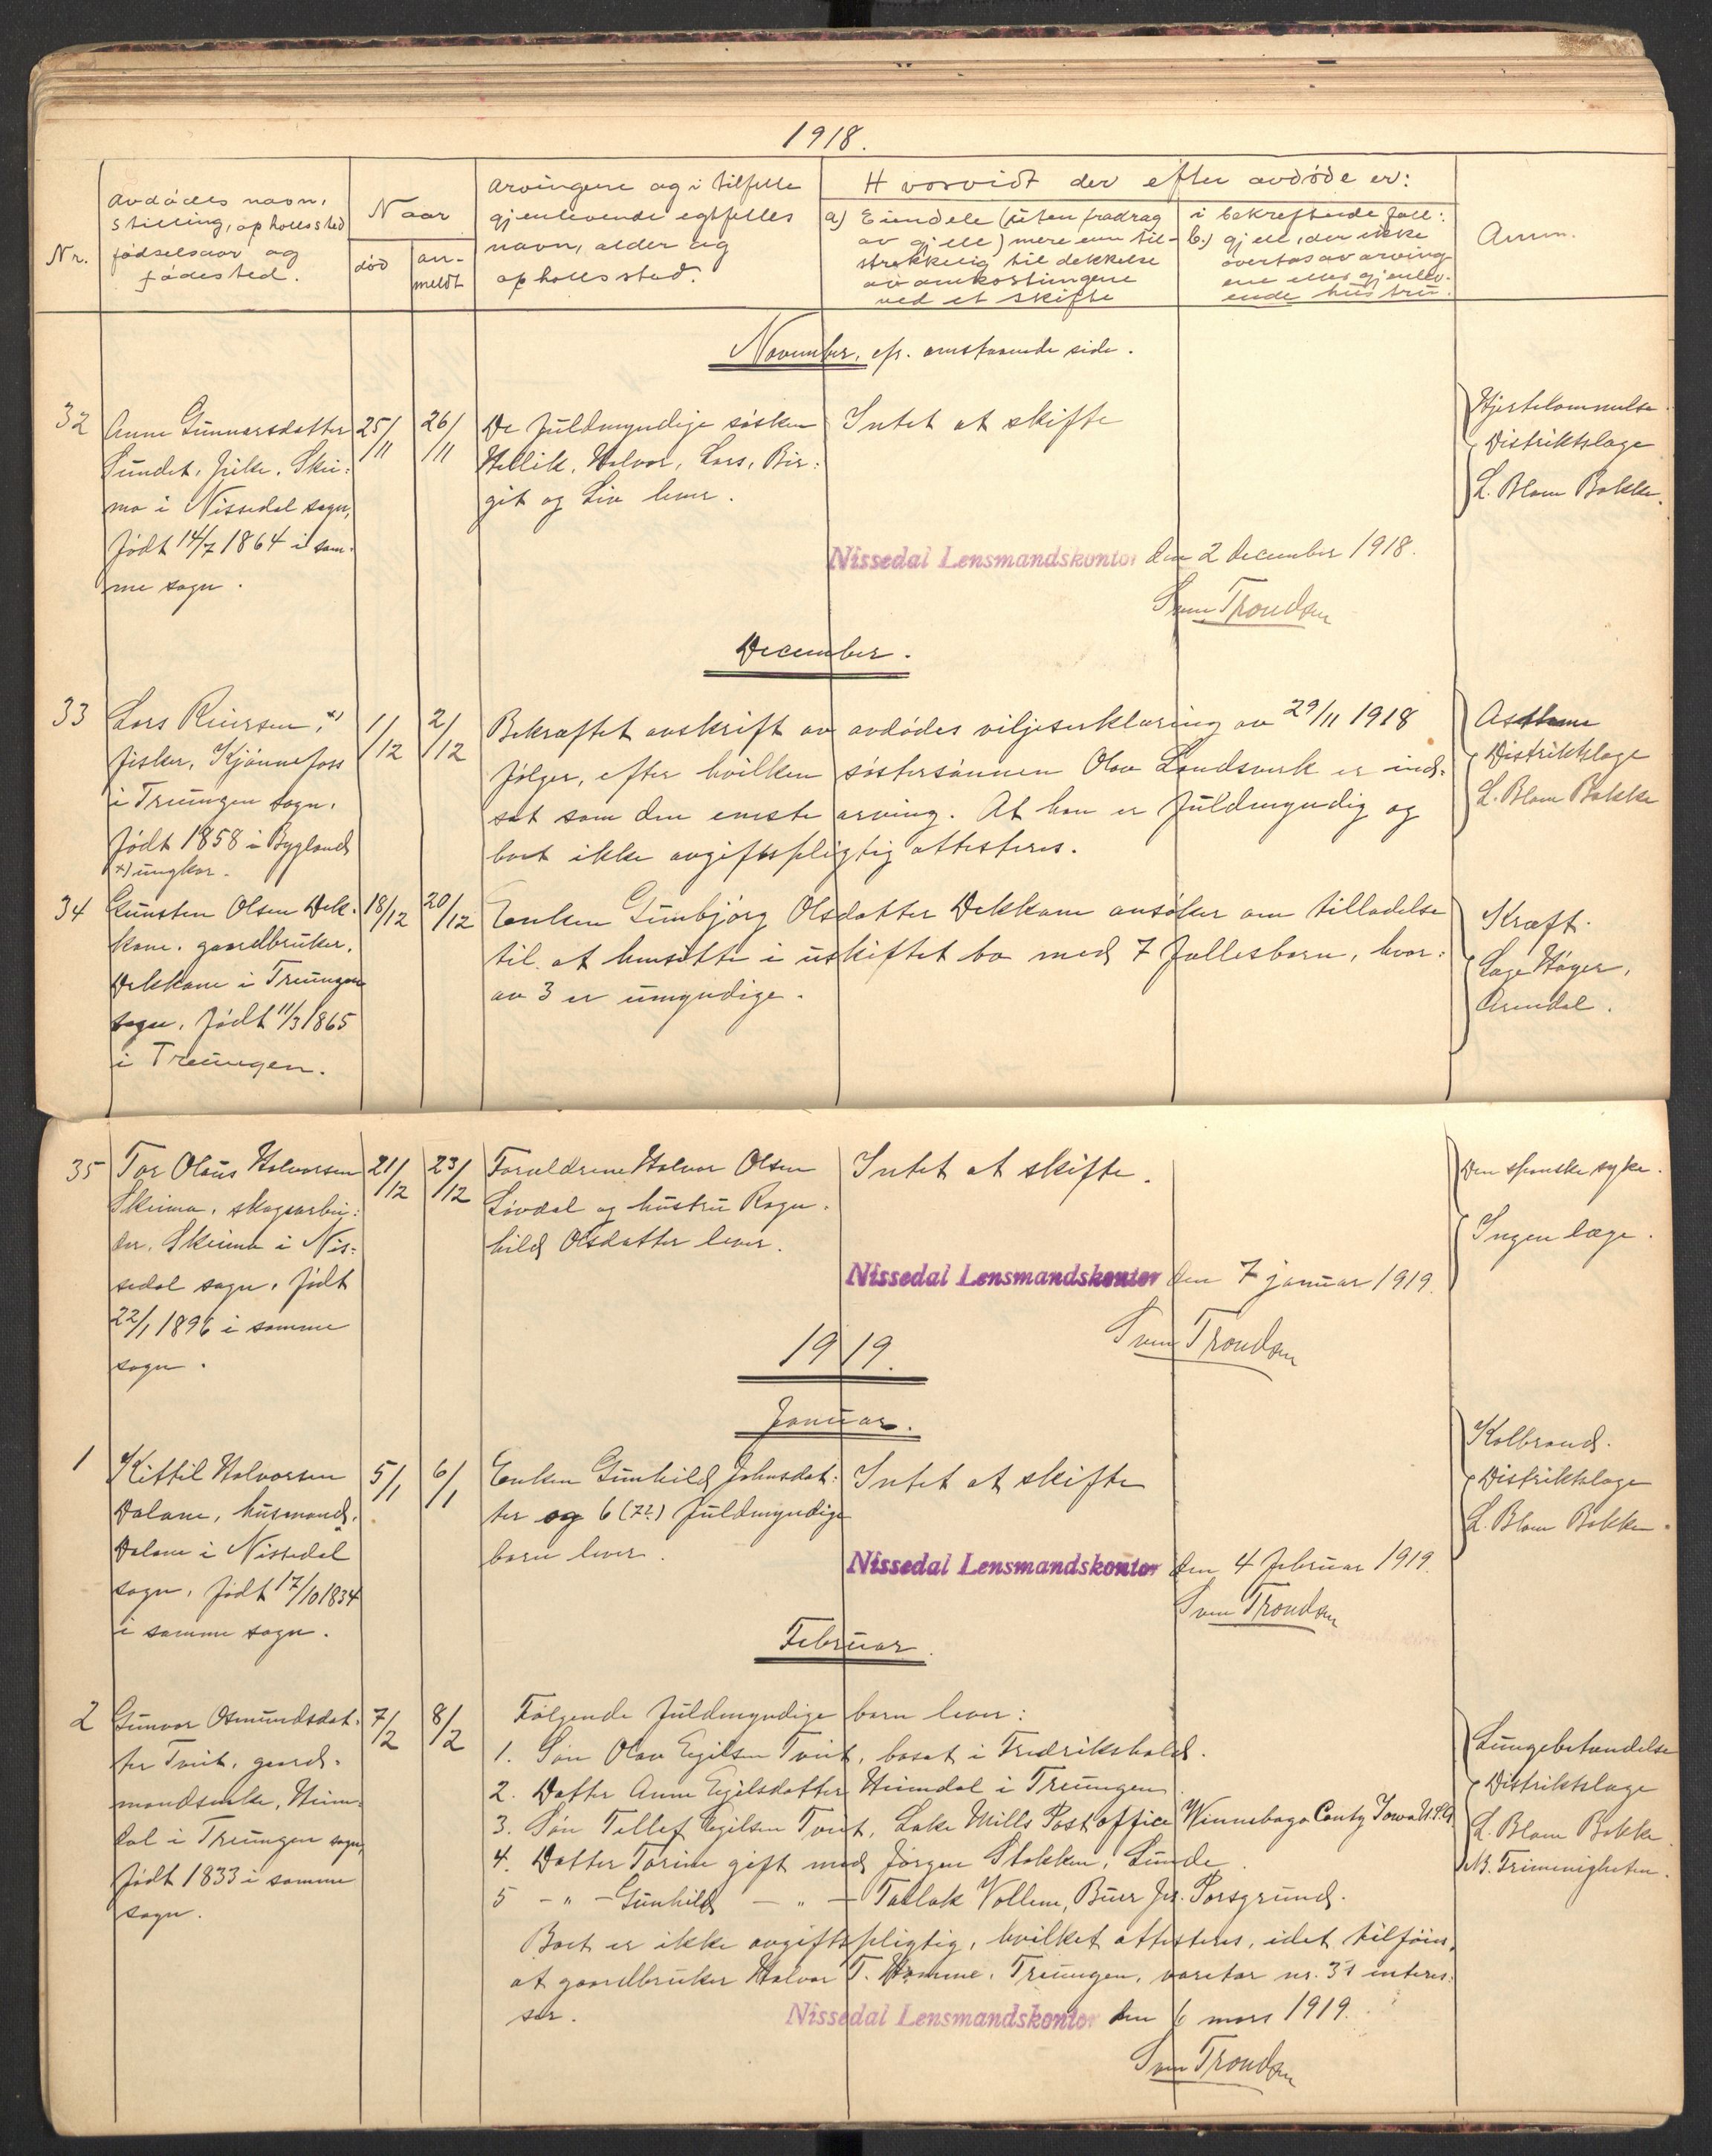 1918.
Nr.
Avdødes navn,
stilling, opholdssted
fødselsaar og
fødested.
Naar
død
an-
meldt
Arvingene og i tilfelle
gjenlevende egtfelles
navn, alder og
opholdssted.
Hvorvidt der efter avdøde er:
a) Eiendele (uten fradrag
av gjeld) mere enn til-
strekkelig til dekkelse
av omkostningene
ved et skifte
i bekreftende fall:
b.) gjeld, der ikke
overtas av arving-
ene eller gjenlev-
ende hustru.
Anm.
November, cfr. omstaaende side.
32
Anne Gunnarsdatter
Sundet, pike, Skei-
mo i Nissedal sogn,
født 14/7 1864 i sam-
me sogn.
25/11
26/11
De fuldmyndige søsken
Hellik, Halvor, Lars, Bir-
git og Liv lever.
Intet at skifte
Hjertelammelse.
Distriktslæge
L. Blom Bakke.
Nissedal Lensmandskontor den 2 december 1918.
Sven Trondsen
December.
33
Lars Reiersen, x)
fisker, Kjønnefoss
i Treungen sogn,
født 1858 i Bygland
x) ungkar.
1/12
2/12
Bekræftet avskrift av avdødes viljeserklæring av 29/11 1918
følger, efter hvilken søstersønnen Olav Landsverk er ind-
sat som den eneste arving. At han er fuldmyndig og
boet ikke avgiftspligtig attesteres.
Asthme
Distriktslæge
L. Blom Bakke
34
Gunsten Olsen Dek-
kane, gaardbruker,
Dekkane i Treungen
sogn, født 11/3 1865
i Treungen.
18/12
20/12
Enken Gunbjørg Olsdatter Dekkane ansøker om tilladelse
til at hensitte i uskiftet bo med 7 fællesbarn, hvor-
av 3 er umyndige.
Kræft.
Læge Høyer,
Arendal.
35
Tor Olaus Halvorsen
Skeimo, skogsarbei-
der, Skeimo i Nis-
sedal sogn, født
22/1 1896 i samme
sogn.
21/12
23/12
Forældrene Halvor Olsen
Løvdal og hustru Ragn-
hild Olsdatter lever.
Intet at skifte.
Den spanske syke.
Ingen læge.
Nissedal Lensmandskontor den 7 januar 1919.
Sven Trondsen
1919.
Januar.
1
Kittil Halvorsen
Dalane, husmand,
Dalane i Nissedal
sogn, født 17/10 1834
i samme sogn.
5/1
6/1
Enken Gunhild Johnsdat-
ter og 6 (7?) fuldmyndige
barn lever.
Intet at skifte
Kolbrand.
Distriktslæge
L. Blom Bakke.
Nissedal Lensmandskontor den 4 februar 1919.
Sven Trondsen
Februar.
2
Gunvor Osmundsdat-
ter Tveit, gaard-
mandsenke, Heim-
dal i Treungen sogn,
født 1833 i samme
sogn.
7/2
8/2
Følgende fuldmyndige barn lever:
1. Søn Olav Egilsen Tveit, bosat i Fredrikshald.
2. Datter Anne Egilsdatter Heimdal i Treungen
3. Søn Tellef Egilsen Tveit, Lake Mills Post office Winnebago Conty Iowa U.S.A
4. Datter Torine gift med Jørgen Stokken, Lunde
5 - " - Gunhild - " - Tallak Vollem, Buer pr. Porsgrund.
Boet er ikke avgiftspligtig, hvilket attesteres, idet tilføies,
at gaardbruker Halvor T. Homme, Treungen, varetar nr. 3's interes-
ser.
Lungebetændelse
Distriktslæge
L. Blom Bakke
Nissedal Lensmandskontor den 6 mars 1919.
Sven Trondsen